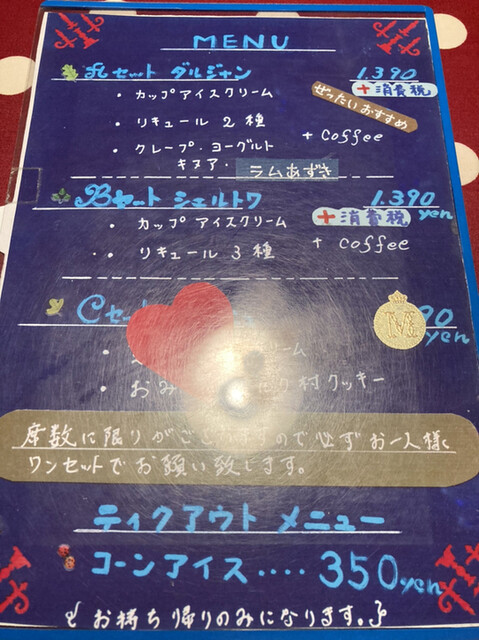 MENU
Aセット ダルジャン 1.390
・カップアイスクリーム +消費税
ぜったいおすすめ
・リキュール 2種 + coffee
・クレープ・ヨーグルト
キヌア・ラムあずき
Bセット シェルトワ 1.390 yen
・カップ アイスクリーム +消費税
・・リキュール 3種 + coffee
Cセッ 90 yen
ーム
・おみ 村クッキー
席数に限りがございますので必ずお一人様
ワンセットでお願い致します。
ティクアウト メニュー
コーンアイス‥‥350yen
お持ち帰りのみになります。